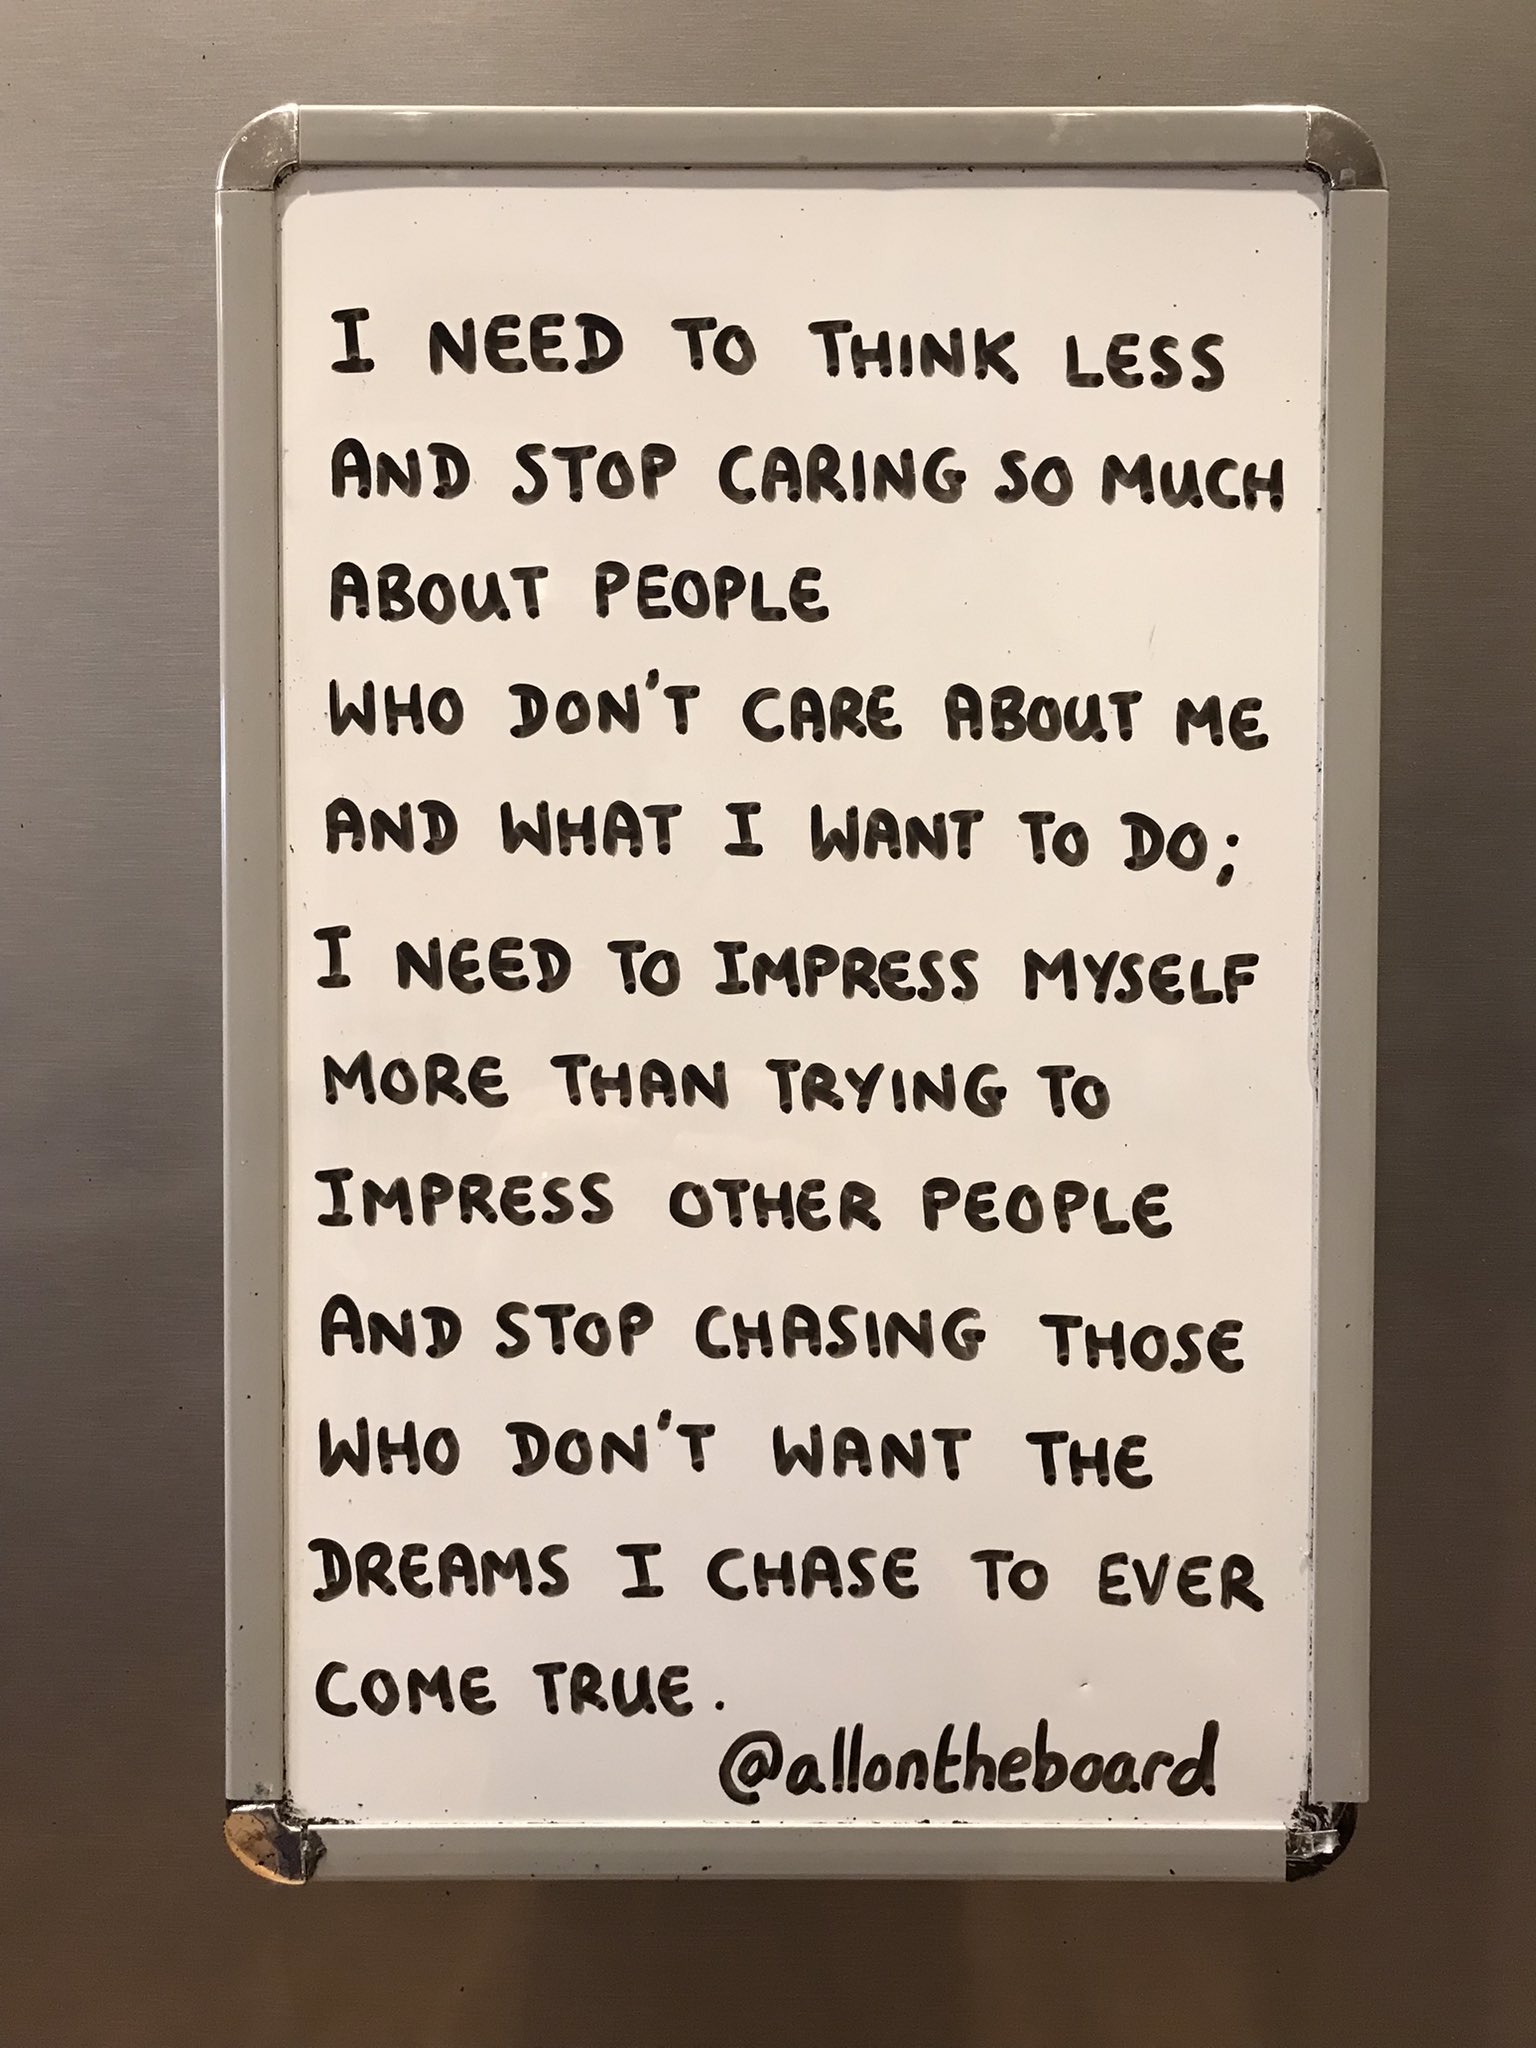 I NEED TO THINK LESS
AND STOP CARING SO MUCH
ABOUT PEOPLE
WHO DON'T CARE ABOUT ME
AND WHAT I WANT TO DO;
I NEED TO IMPRESS MYSELF
MORE THAN TRYING TO
IMPRESS OTHER PEOPLE
AND STOP CHASING THOSE
WHO DON'T WANT THE
DREAMS I CHASE TO EVER
COME TRUE.
@allontheboard